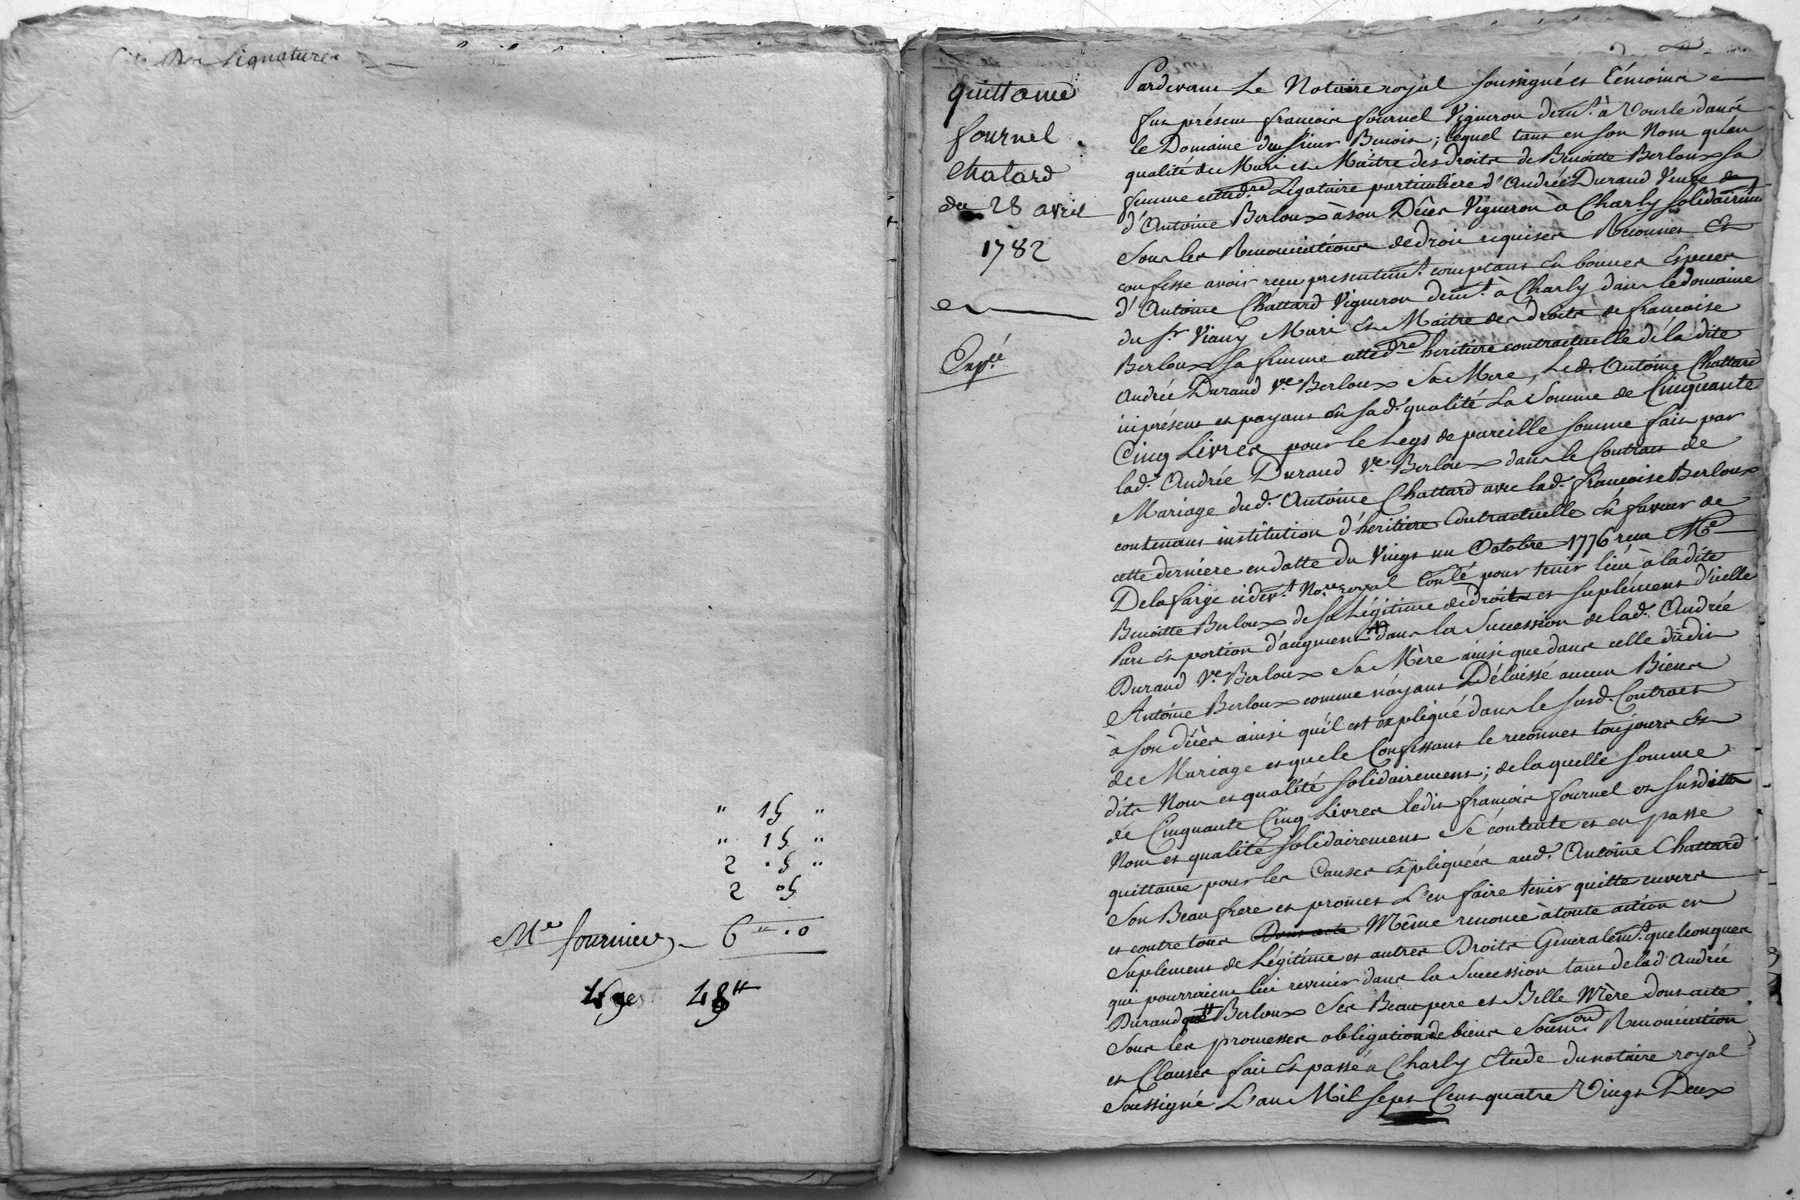 Signatures
" 15 "
" 15 "
2 . 5 "
2 05
Me fournier 6 " . 0
48 tt
quittance
fournel
Chatard
du 28 avril
1782
Expé
Pardevant Le Notaire royal soussigné et témoins
fut présent francois fournel Vigneron demt. à Vourle dans
le Domaine du sieur Benoit ; lequel tant en son Nom qu'en
qualité de Mari et Maitre des droits de Benoitte Berloux sa
femme cette dre Légataire particuliere d'Andrée Durand Veuve
d'Antoine Berloux à son Décès Vigneron à Charly solidairement
sous les Renonciations de droit requises Reconnet Et
confesse avoir reçu presentemt. comptant En bonnes Especes
d'Antoine Chattard Vigneron demt. à Charly dans le domaine
du sr. Viany Mari et Maitre des droits de francoise
Berloux sa femme cette dre heritiere contractuelle de la dite
Andrée Durand ve. Berloux sa Mere, Led. Antoine Chattard
ici présent et payant En sad. qualité La Somme de Cinquante
Cinq Livres pour le Legs de pareille somme fait par
lad. Andrée Durand Ve. Berloux dans le Contrat de
Mariage dud. Antoine Chattard avec lad. francoise Berloux
contenant institution d'heritiere Contractuelle En faveur de
cette derniere en datte du Vingt un Octobre 1776 reçu Me
Delafarge icidevt. Nore. royal Conlé pour tenir lieu à la dite
Benoitte Berloux de sa Légitime de droits et suplément d'icelle
Part et portion d'augment dans la Succession de lad. Andrée
Durand Ve. Berloux sa Mère ainsi que dans celle dudit
Antoine Berloux comme n'ayant Délaissé aucun Biens
à son décès ainsi qu'il est expliqué dans le susd. Contract
de Mariage et que le Confessant le reconnet toujours Es
dits Nom et qualité solidairement ; de laquelle somme
de Cinquante Cinq Livres ledit francois fournel es susdits
Nom et qualité solidairement se contente et en passe
quittance pour les Causes Expliquées aud. Antoine Chattard
son Beaufrere et promet L'en faire tenir quitte envers
et contre tous Dont acte Même renonce à toute action en
Suplement de Légitime et autres Droits Generalemt. quelconques
qui pourroient lui revenir dans la Succession tant de lad. Andrée
Durand Berloux ses Beaupere et Belle Mère dont acte
sous les promesses obligation de biens Soumi on Renonciation
et Clauses fait et passé à Charly Etude du notaire royal
Soussigné L'an Mil Sept Cent quatre Vingt Deux